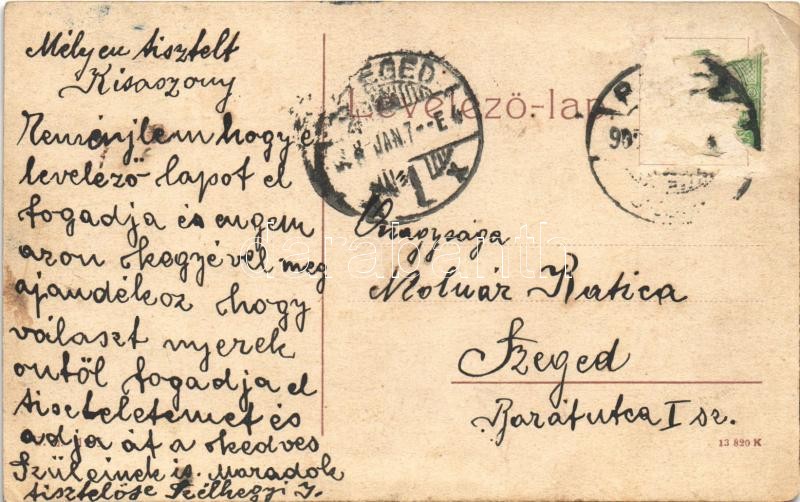 Mélyen tisztelt
Kisaszony
Reménjlem hogy e
levelező lapot el
fogadja és engem
azon kegyével meg
ajandékoz hogy
választ nyerek
ontöl fogadja el
tiszteletemet és
adja át a kedves
Szüleinek is. maradok
tisztelöse Szélhegyi J.
Levelező-lap
SZEGED
JAN. 7--E 4
1
Onagysága
Molnár Katica
Szeged
Barátutca I sz.
13 820 K
darabanth